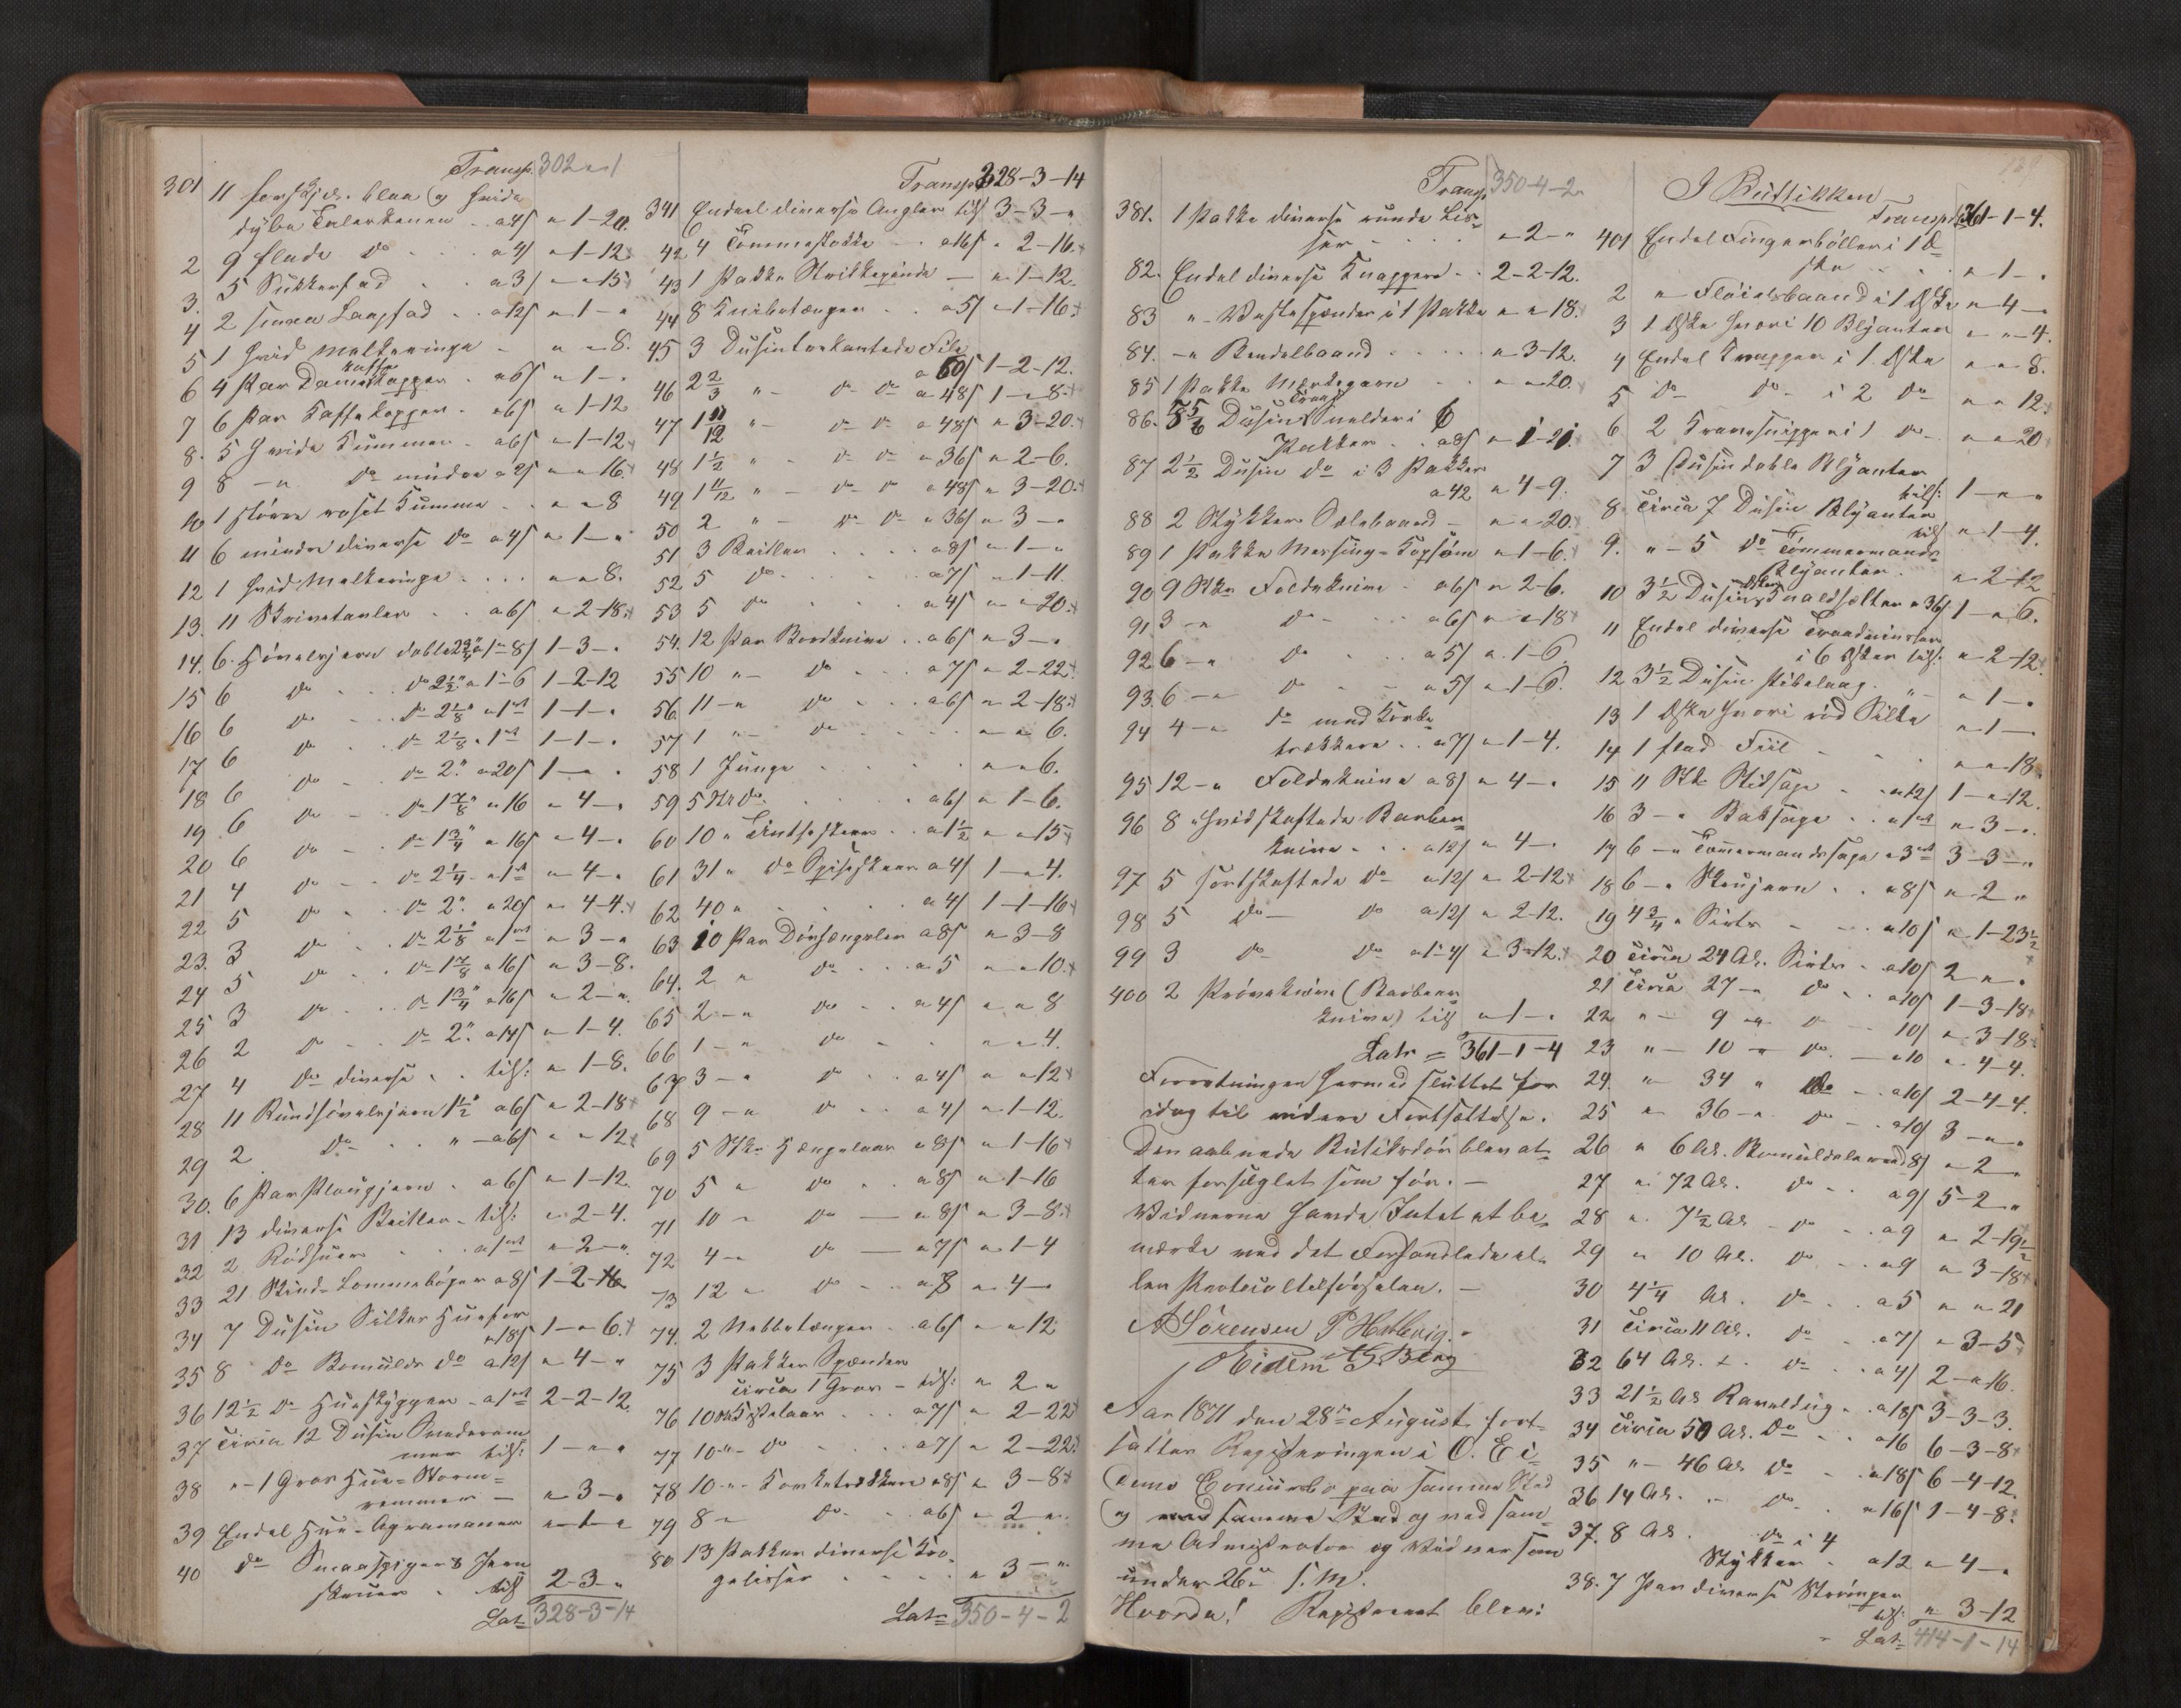 Transp. 302 " 1
301 11 forskjel. blaa og hvide
dybe Talerkener .. a 4/ " 1-20.
2 9 flade do .. a 4/ " 1-12
3. 5 Sukkerfad .. a 3/ " " 15
4 2 smaa Langfad .. a 12/ " 1 - "
5 1 hvid Melkeringe - " " 8.
6 4 Par Dame kaffe kopper . a 6/ " 1 - "
7 6 Par Kaffekopper . a 6/ " 1-12
8. 5 hvide Kummer . a 6/ " 1-12
9 8 - " do mindre a 2/ " " 16.
10 1 större roset Kumme .. " " 8
11 6 mindre diverse do a 4/ " 1 - "
12 1 hvid Melkeringe ... " " 8.
13. 11 Skrivetavler .. a 6/ " 2-18.
14. 6 Höveljern doble 2 3/4" a 1 " 8/ 1-3 - "
15 6 do .. do 2 1/2" a 1-6 1-2-12
16 6 do .. do 2 1/8" a 1 ort 1-1- "
17 6 do .. do 2 1/8 " 1 ort 1-1- "
18 6 do .. do 2" a 20/ 1 - " "
19 6 do .. do 1 7/8" a 16 " 4 - "
20 6 do .. do 1 3/4" a 16/ " 4 - "
21 4 do .. do 2 1/4 a 1 ort " 4 - "
22 5 do .. do 2" a 20/ " 4-4.
23. 3 do .. do 2 1/8" a 1 ort " 3 - "
24 5 do .. do 1 7/8 a 16/ " 3-8.
25 3 do .. do 1 3/4" a 16/ " 2 - "
26 2 do .. do 2" a 14/ " 1-4.
27 4 do diverse .. tils: " 1-8.
28 11 Rundhöveljern 1 1/2" a 6/ " 2-18
29 2 do .. " - a 6/ " " 12
30. 6 Par Plougjern . a 6/ " 1-12.
31 13 diverse Beitler - tils: " 2-4.
32 2 .. a 1 ort " 2 - "
33 21 Skind-Lommebøger a 8/ 1-2-
34 7 Dusin Silker Huefor
a 18/ 1 - " 6.
35 8 do Bomulds do a 12/ " 4 - "
36 12 1/2 do Hueskygger - a 1 ort 2-2-12.
37 Circa 12 Dusin Svederem
mer tils: 1 - " "
38 " - 1 Gros Hue=Storm=
remmer - " 3 - "
39 Endel Hue-Agramaner " 1 - "
40 do Smaaspiger & Jern
skruer . tils 2-3 - "
Lat= 328-3-14
Transp. 328-3-14
341 Endeel diverse Angler tils 3-3 - "
42 4 Tommestokke .. a 16/ " 2-16.
43 1 Pakke Strikkepinde - " 1-12.
44 8 Knibetænger .. a 5/ " 1-16.
45 3 Dusin trekantede File
a 60/ 1-2-12.
46 2 2/3 " - do do a 48/ 1 - " 8.
47 1 11/12 " - do do a 48/ " 3-20.
48 1 1/2 " - do do a 36/ " 2-6.
49 1 11/12 " - do do a 48/ " 3-20.
50 2 " - do do a 36/ " 3 - "
51 3 Beitler .... a 8/ " 1 - "
52 5 do .... a 7/ " 1-11.
53 5 do .... a 4/ " " 20.
54. 12 Par Bordknive .. a 6/ " 3 - "
55 10 " - do .. a 7/ " 2-22.
56. 11 - " do .. a 6/ " 2-18.
57 1 " - do .... " " 6.
58 1 Junge .... " " 6.
59 5 Stk do .... a 6/ " 1-6.
60 10 " Tintheskeer .. a 1 1/2 " " 15
61 31 " do Spiseskeer a 4/ 1 - " 4.
62 40 " .... a 4/ 1-1-16
63 10 Par Dörhængsler a 8/ " 3-8
64. 2 " do .. a 5 " " 10.
65 2 - " do .. a 4/ " " 8
66 1 - " do .. " " 4.
67 3 - " do .. a 4/ " " 12
68 9 - " do .. a 4/ " 1-12.
69 5 Stk. Hængelaas a 8/ " 1-16
70 5 " do .. a 8/ " 1-16
71 10 - do - a 8/ " 3-8.
72 4 - " do - a 7/ " 1-4
73 12 " do .. a 8 " 4 - "
74. 2 Nebbetænger . a 6/ " " 12
75 3 Pakker Spænder
circa 1 Gros - tils: " 2 "
76 10 Stk Kistelaas .. a 7/ " 2-22
77 10 " - do .. a 7/ " 2-22.
78 10 " - Korketrækkere a 8/ " 3-8
79 8 - do . a 6/ " 2 - "
80 13 Pakker diverse
" 3 - "
Lat= 350-4-2
Transp. 350-4-2
381. 1 Pakke diverse runde Lis=
ser .... " 2 - "
82. Endel diverse Knapper .. 2-2-12.
83 " - Vestespænder i 1 Pakke " " 18.
84. - " Bendelbaand .... " 3-12.
85 1 Pakke Merkegarn .. " " 20.
86. 8 5/6 Dusin Traad Sneller i 6
Pakker .. a 8/ " 1-21.
87 2 1/2 Dusin do i 3 Pakker
a 42 " 4-9.
88 2 Stykker Sælebaand - " " 20.
89 1 Pakke Messing-Kopsöm " 1-6.
90 9 Stk. Foldeknive . a 6/ " 2-6.
91. 3 - " do .. a 6/ " " 18
92 6 - " do .. a 5/ " 1-6
93. 6 - " do .. a 5/ " 1-6.
94 4 - " do med Korke
trækkere .. a 7/ " 1-4.
95 12 - " Foldeknive a 8/ " 4 - "
96 8 " hvidskaftede Barber=
knive .. a 12/ " 4 - "
97 5 sortskaftede do a 12/ " 2-12
98 5 do - do a 12/ " 2-12.
99 3 do do a 1-4/ " 3-12.
400 2 Pröveknive (Barbeer
knive) tils " 1 - "
Lat= 361-1-4
Forretningen hermed sluttet for
idag til videre Fortsættelse.
Den aabnede Butiksdör blev at=
ter forseglet som för. -
Vidnerne havde Intet at be=
mærke ved det Forhandlede el=
ler Protocoltilförselen. -
A Sörensen P Hellerig.
O Eidem A G. Berg
Aar 1871 den 28de August fort=
sattes Registreringen i O. Ei=
dems Concursbo paa samme Sted
og med samme Sted og ved sam=
me Admistrator og Vidner som
under 26de s. M.
Hvorda! Registreret blev:
I Butikken
Transpt. 361-1-4.
401 Endel Fingerböller i 1 Æ=
ske .. " 1 - "
2 " Flöielsbaand i 1 Æske " 4 - "
3 1 Æske hvori 10 Blyanter " " 4.
4 Endel Knapper i 1 Æske " " 8.
5 do do i 2 do " " 12.
6 2 i 1 do " " 20
7 3 Dusin doble Blyanter
tils: 1 - " "
8. Circa 7 Dusin Blyanter
tils " 1-4.
9. " - 5 do Tömmermands=
Blyanter. " 2-12
10 3 1/2 Dusin Æsker Knaldhætter a 36/ 1 - " 6.
11 Endel diverse
i 6 Æsker tils: " 2-12.
12 3 1/2 Dusin Pibelaag . " - " 1 - "
13 1 Æske hvori röd Silke " 1 - "
14 1 flad Fiil .. " " 18
15 11 Stk Stiksage .. a 12/ 1 - " 12.
16 3 - " Baksage .. a 1 ort " 3 - "
17 6 - " Tömmermandssage a 3 ort 3-3 - "
18 6 - " Skrujern .. a 8/ " 2 "
19 4 3/4 " Sirts .. a 10/ " 1-23 1/2
20 Circa 24 Al. Sirts . a 10/ 2 " "
21 Circa 27 - " do .. a 10/ 1-3-18
22 " - 9 - " do .. 10/ " 3-18
23 " - 10 - " do - a 10 " 4-4.
24. " - 34 " do .. a 10/ 2-4-4.
25 " - 36 - " do .. a 10/ 3 - " "
26 " 6 Al. Bomuldslærred 8/ " 2 "
27 " 72 Al. do .. a 9/ 5-2 "
28 " 7 1/2 Al. do .. a 9 " 2-19 1/2
29 " 10 Al. do .. a 9 " 3-18
30 4 1/4 Al. do .. a 5 " " 21
31 Circa 11 Al. do .. a 7/ " 3-5
32 64 Al. do .. a 4/ 2 - " 16.
33 21 1/2 Al . a 18/ 3-3-3.
34 Circa 50 Al. do .. a 16 6-3-8
35 " - 46 Al. do .. a 18/ 6-4-12.
36 14 Al. do . a 16/ 1-4-8.
37. 8 Al. do i 4
Stykker . a 12 " 4 - "
38. 7 Par diverse Strömper
tils: " 3-12
Lat= 414-1-14